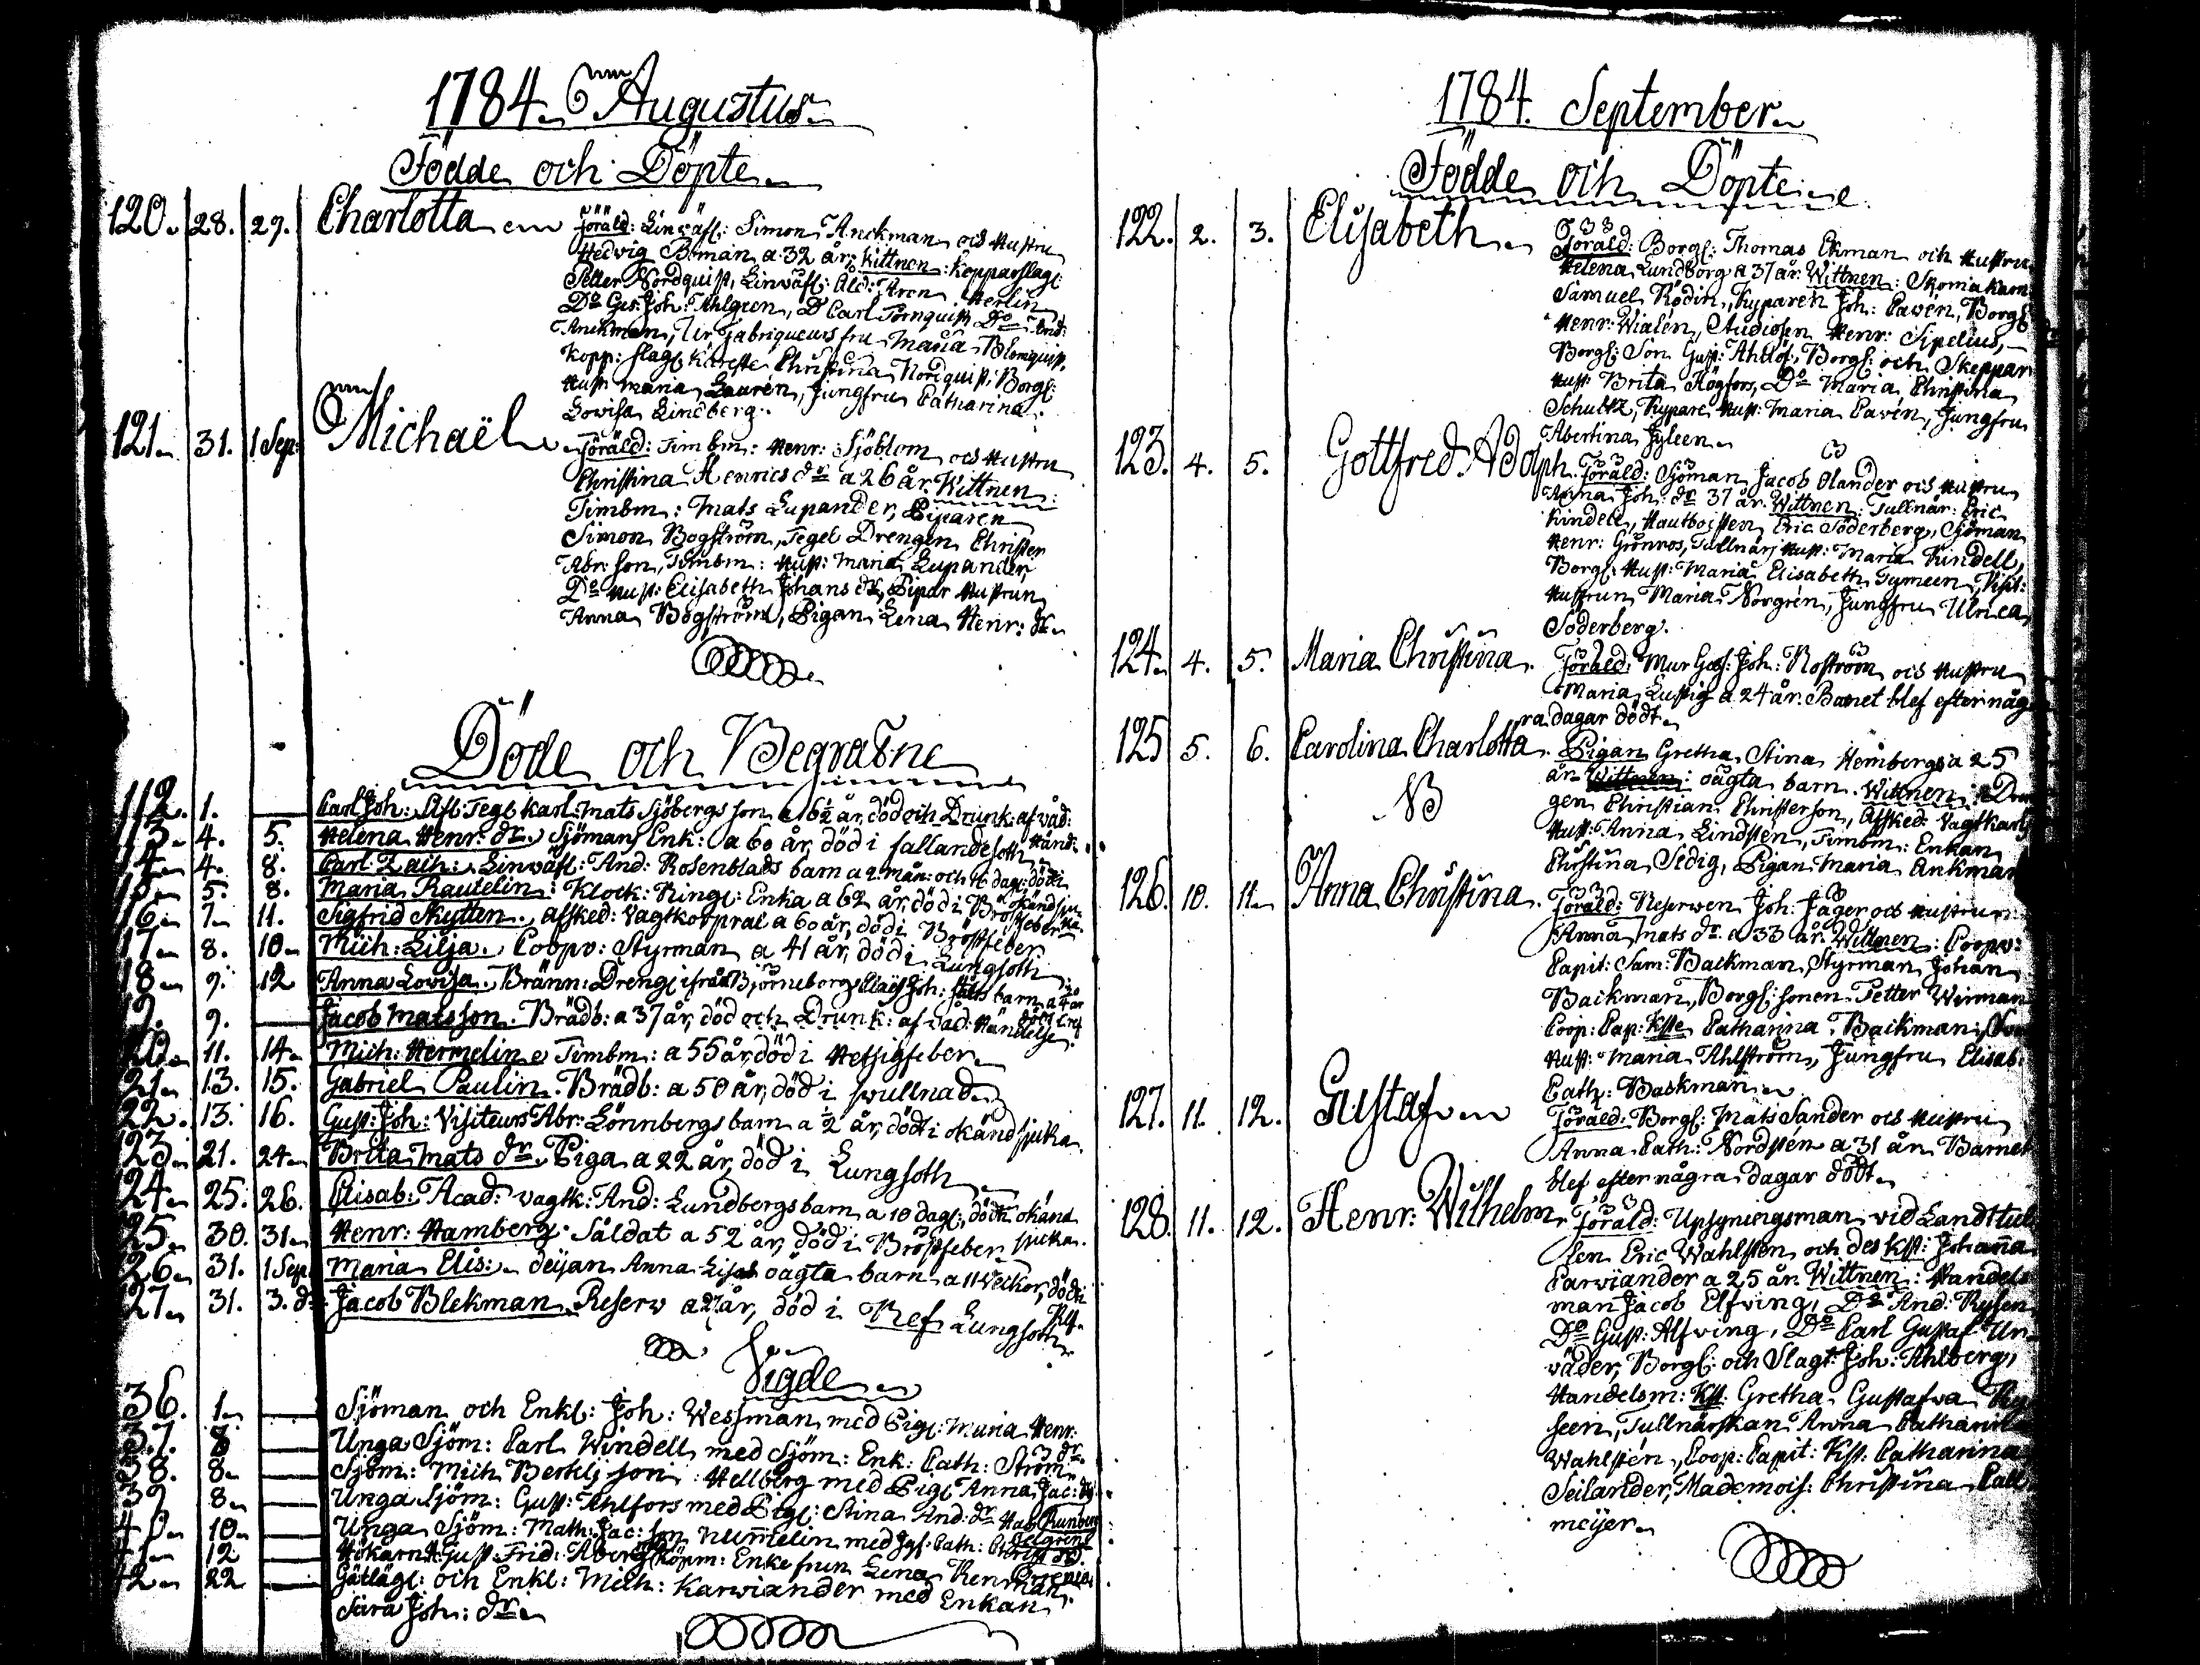 1784. Augustus.
Födde och Döpte.
120. 28. 29. Charlotta
Föräld: Linväfv: Simon Anckman och Hustru
Hedvig Boman a 32 år, Wittnen: Kopparslag:
Petter Nordquist, Linväfv: Åld: Aron Merlin
Do Gus: Joh: Ahlgren, Do Carl Törnquist, Do And:
Anckman, Ur Fabriqueurs fru Maria Blomquist,
Kopp: slag: käreste Christina Nordquist, Borg:
Hust: Maria Lauren, Jungfru Catharina
Lowisa Lindberg.
121. 31. 1 Sep: Michaël
Föräld: Timbm: Henr: Sjöblom och Hustru
Christina Henrics dr a 26 år. Wittnen:
Timbm: Mats Lupander, Piparen
Simon Bogström, Tegel Drengen Christer
Abr: son, Timbm: Hust: Maria Lupander,
Do Hust: Elisabeth Johans dr, Pipar Hustrun
Anna Bogström, Pigan Lena Henr: dr
Döde och Begrafne
112. 1. Carl Joh: Tegl: karl Mats Sjöbergs son a 6½ år, död och Drunk: af våd:
13. 4. 5. Helena Henr: dr Sjömans Enk: a 60 år, död i fallandesoth händ:
14. 4. 8. Carl Zach: Linväfv: And: Rosenblads barn a 2 mån: och 16 dag: död i
15. 5. 8. Maria Rautelin: Klock: Ring: Enka a 62 år, död i Bröstfeber okänd sju-
16. 7. 11. Sigfrid Skytten, afsked: Vagtkorpral a 60 år, död i Bröstfeber ka.
17. 8. 10. Mich: Lilja. Coopv: Styrman a 41 år, död i Lungsoth
18. 9. 12. Anna Lowisa. Bränn: Dreng: ifrån Björneborg Joh: barn a 4 år
19. 9. Jacob Matsson. Brädb: a 37 år, död och Drunk: af våd: Händelse.
20. 11. 14. Mich: Hermelin Timbm: a 55 år, död i Hetsigfeber
21. 13. 15. Gabriel Paulin. Brädb: a 50 år, död i swullnad
22. 13. 16. Gust: Joh: Visiteurs Abr: Lönnbergs barn a ½ år, dödt i okänd sjuka.
23. 21. 24. Brita Mats dr. Piga a 22 år, död i Lungsoth
24. 25. 26. Elisab: Acad: vagtk: And: Lundbergs barn a 10 dag:, dödt okänd
25. 30. 31. Henr: Hamberg. Såldat a 52 år, död i Bröstfeber sjuka.
26. 31. 1 Sep Maria Elis: deijan Anna Lisas oägta barn a 11 veckor, död i
27. 31. 3. do Jacob Blekman. Reserv a 27 år, död i Ref Lungsoth Ref.
Vigde
36. 1. Sjöman och Enkl: Joh: Wessman med Pig: Maria Henr:
37. 8 Unga Sjöm: Carl Windell med Sjöm: Enk: Cath: Ström dr
38. 8. Sjöm: Mich Hellberg med Pig: Anna Jac: dr
39 8. Unga Sjöm: Gust: Ahlfors med Pig: Stina And: dr
40. 10. Unga Sjöm: Math: Jac: son Numelin med Jgf: Cath:
41. 12 Hökarn Gust: Frid: Åberg Köpm: Enkefrun Lena Renman
42. 22 och Enkl: Mich: Karviander med Enkan
Sara Joh: dr
1784. September.
Födde och Döpte.
122. 2. 3. Elisabeth
Föräld: Borg: Thomas Ekman och Hustru
Helena Lundborg a 37 år. Wittnen: Skomakarn
Samuel Rödin, Kyparen Joh: Pavén, Borg:
Henr: Wialén, Studiosen Henr: Sipelius,
Borg: Son Gust: Ahllöf, Borg: och Skeppar
Hust: Brita Högfors, Do Maria Christina
Schultz, Kypare Hust: Maria Pavén, Jungfru
Abertina Jyleen
123. 4. 5. Gottfred Adolph.
Föräld: Sjöman Jacob Olander och Hustru
Anna Joh: dr 37 år. Wittnen: Tullnär: Eric
Kindell, Hautboisten Eric Söderberg, Sjöman
Henr: Grönros, Tullnärs Hust: Maria Kindell,
Borg: Hust: Maria Elisabeth Tymeen, Vikt:
Hustrun Maria Norgrén, Jungfru Ulrica
Söderberg.
124. 4. 5. Maria Christina.
Föräld: Mur Ges: Joh: Roström och Hustru
Maria Lustig a 24 år. Barnet blef efter någ
ra dagar dödt.
125 5. 6. Carolina Charlotta.
Pigan Gretha Stina Hembergs a 25
år. Wittnen: oägta barn. Wittnen: Dren
gen Christian Christerson, Afsked: Vagtkarls
Hust: Anna Lindsten, Timbm: Enkan
Christina Sedig, Pigan Maria Ankman
NB
126. 10. 11. Anna Christina.
Föräld: Reserven Joh: Jäger och Hustrun
Anna Mats dr. a 33 år. Wittnen: Coopv:
Capit: Sam: Backman, Styrman Johan
Backman, Borg: sonen Petter Wirman
Coop: Cap: Kste Catharina Backman,
Hust: Maria Ahlström, Jungfru Elisab:
Cath: Backman
127. 11. 12. Gustaf
Föräld: Borg: Mats Sander och Hustru
Anna Cath: Nordsten a 31 år. Barnet
blef efter några dagar dödt.
128. 11. 12. Henr: Wilhelm.
Föräld: Upsyningsman vid Landttul
len Eric Wahlsten och des Kst: Johanna
Carviander a 25 år. Wittnen: Handels
man Jacob Elfving, Do And: Rysen
Do Gust: Alfving, Do Carl Gustaf Un-
väder, Borg: och Slagt: Joh: Ahlberg,
Handelsm: Kst: Gretha Gustafva Ry
seen, Tullnärskan Anna Catharina
Wahlstén, Coop: Capit: Kst: Catharina
Seilander, Mademois: Christina Call
meijer.